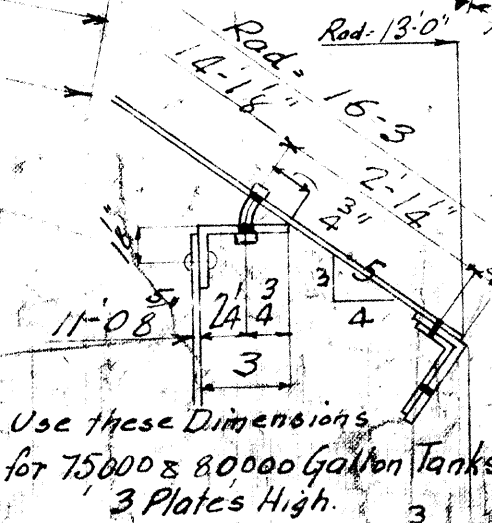 Rad = 16-3
14-1⅛"
Rad = 13'-0"
2'-1¼"
4¾"
3
5
4
11'-0⅝"
2¼
¾
3
Use these Dimensions
for 75000 & 80000 Gallon Tanks
3 Plates High.
3